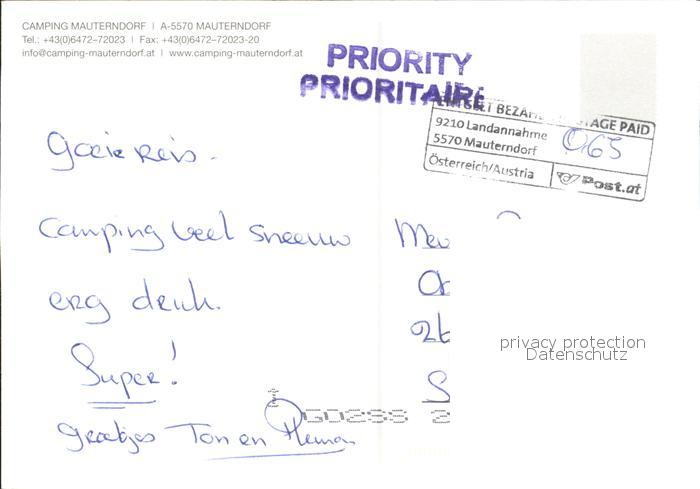 CAMPING MAUTERNDORF | A-5570 MAUTERNDORF
Tel.: +43(0)6472–72023 | Fax: +43(0)6472–72023-20
info@camping-mauterndorf.at | www.camping-mauterndorf.at
PRIORITY
PRIORITAIRE
ENTGELT BEZAHLT POSTAGE PAID
9210 Landannahme
5570 Mauterndorf
065
Österreich/Austria
Post.at
Goeie Reis.
Camping veel sneeuw
erg druk.
Super!
Groetjes Ton en
Mev
26
S
privacy protection
Datenschutz